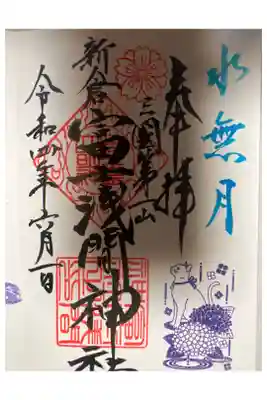 水無月
奉拝
三國第一山
新倉富士浅間神社
令和四年六月一日